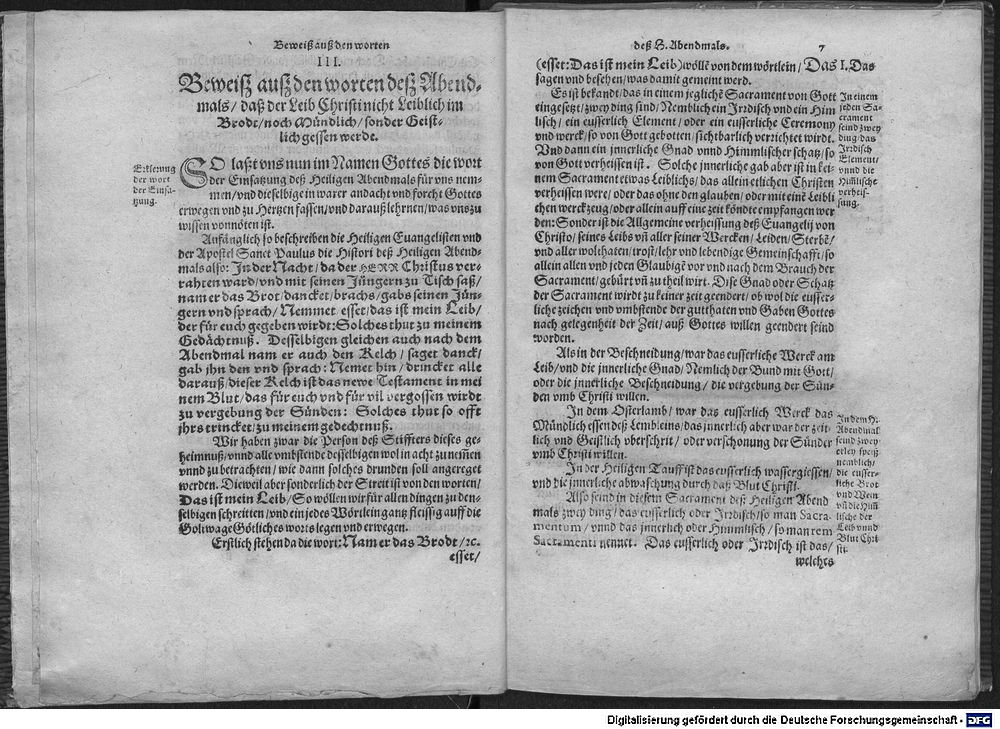 Beweiß auß den worten
III.
Beweiß auß den worten deß Abend-
mals/ daß der Leib Christi nicht Leiblich im
Brodt/ noch Mündlich/ sonder Geist-
lich gessen werde.
Erklerung
der wort
der Einsa-
tzung.
SO laßt vns nun im Namen Gottes die wort
der Einsatzung deß Heiligen Abendmals für vns nem-
men/ vnd dieselbige in warer andacht vnd forcht Gottes
erwegen vnd zu Hertzen fassen/ vnd darauß lehrnen/ was vns zu
wissen vonnöten ist.
Anfänglich so beschreiben die Heiligen Euangelisten vnd
der Apostel Sanct Paulus die Histori deß Heiligen Abend-
mals also: In der Nacht/ da der HERR Christus ver-
rahten ward/ vnd mit seinen Jüngern zu Tisch saß/
nam er das Brot/ dancket/ brachs/ gabs seinen Jün-
gern vnd sprach/ Nemmet esset/ das ist mein Leib/
der für euch gegeben wirdt: Solches thut zu meinem
Gedächtnuß. Desselbigen gleichen auch nach dem
Abendmal nam er auch den Kelch/ saget danck/
gab jhn den vnd sprach: Nemet hin/ drincket alle
darauß/ dieser Kelch ist das newe Testament in mei
nem Blut/ das für euch vnd für vil vergossen wirdt
zu vergebung der Sünden: Solches thut so offt
jhrs trincket/ zu meinem gedechtnuß.
Wir haben zwar die Person deß Stiffters dieses ge-
heimnuß/ vnnd alle vmbstende desselbigen wol in acht zu nem̃en
vnnd zu betrachten/ wie dann solches drunden soll angereget
werden. Dieweil aber sonderlich der Streit ist von den worten/
Das ist mein Leib/ So wöllen wir für allen dingen zu den-
selbigen schreitten/ vnd ein jedes Wörtlein gantz fleissig auff die
Goltwage Götliches worts legen vnd erwegen.
Erstlich stehen da die wort: Nam er das Brodt/ ꝛc.
esset/
deß H. Abendmals. 7
(esset: Das ist mein Leib) wölle von dem wörtlein/ Das I. Das
sagen vnd besehen/ was damit gemeint werd.
Es ist bekandt/ das in einem jeglichẽ Sacrament von Gott
eingesetzt/ zwey ding sind/ Nemblich ein Irrdisch vnd ein Him
lisch/ ein eusserlich Element/ oder ein eusserliche Ceremony
vnd werck/ so von Gott gebotten/ sichtbarlich verrichtet wirdt.
Vnd dann ein jnnerliche Gnad vnnd Himmlischer schatz/ so
von Gott verheissen ist. Solche jnnerliche gab aber ist in kei-
nem Sacrament etwas Leiblichs/ das allein etlichen Christen
verheissen were/ oder das ohne den glauben/ oder mit einẽ Leibli
chen werckzeug/ oder allein auff eine zeit köndte empfangen wer
den: Sonder ist die Allgemeine verheissung deß Euangelij von
Christo/ seines Leibs vñ aller seiner Wercken/ Leiden/ Sterbẽ/
vnd aller wolthaten/ trost/ lehr vnd lebendige Gemeinschafft/ so
allein allen vnd jeden Glaubigẽ vor vnd nach dem Brauch der
Sacrament/ gebürt vñ zu theil wirt. Dise Gnad oder Schatz
der Sacrament wirdt zu keiner zeit geendert/ ob wol die eusser-
liche zeichen vnd vmbstende der gutthaten vnd Gaben Gottes
nach gelegenheit der Zeit/ auß Gottes willen geendert seind
worden.
In einem
jeden Sa-
crament
seind zwey
ding/ das
Irrdisch
Element/
vnnd die
Him̃lische
verheis-
sung.
Als in der Beschneidung/ war das eusserliche Werck am
Leib/ vnd die jnnerliche Gnad/ Nemlich der Bund mit Gott/
oder die jnnerliche Beschneidung/ die vergebung der Sün-
den vmb Christi willen.
In dem Osterlamb/ war das eusserlich Werck das
Mündlich essen deß Lembleins/ das jnnerlich aber war der zeit-
lich vnd Geistlich vberschrit/ oder verschonung der Sünder
vmb Christi willen.
In der Heiligen Tauff ist das eusserlich wassergiessen/
vnd die jnnerliche abwaschung durch daß Blut Christi.
Also seind in diesem Sacrament deß Heiligen Abend
mals zwey ding/ das eusserlich oder Irrdisch/ so man Sacra-
mentum/ vnnd das jnnerlich oder Himmlisch/ so man rem
Sacramenti nennet. Das eusserlich oder Irrdisch ist das/
welches
In dem H.
Abendmal
seind zwey
erley speiß
nemblich/
die eusser-
liche Brot
vnd Wein
vñ die Him̃
lische der
Leib vnnd
Blut Chri
sti.
Digitalisierung gefördert durch die Deutsche Forschungsgemeinschaft - DFG